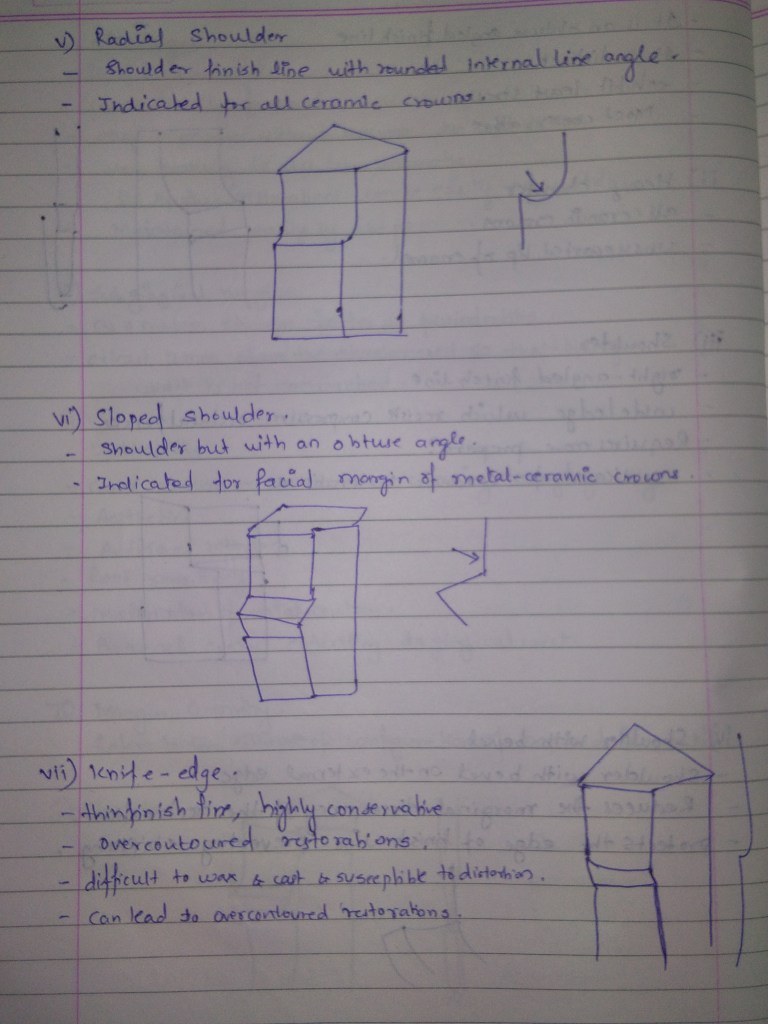 v) Radial Shoulder
- Shoulder finish line with rounded internal line angle.
- Indicated for all ceramic crowns.
vi) Sloped shoulder.
- shoulder but with an obtuse angle.
- Indicated for facial margin of metal-ceramic crowns.
vii) Knife-edge.
- thin finish line, highly conservative
- overcoutoured restorations.
- difficult to wax & cast & susceptible to distortion.
- can lead to overcontoured restorations.